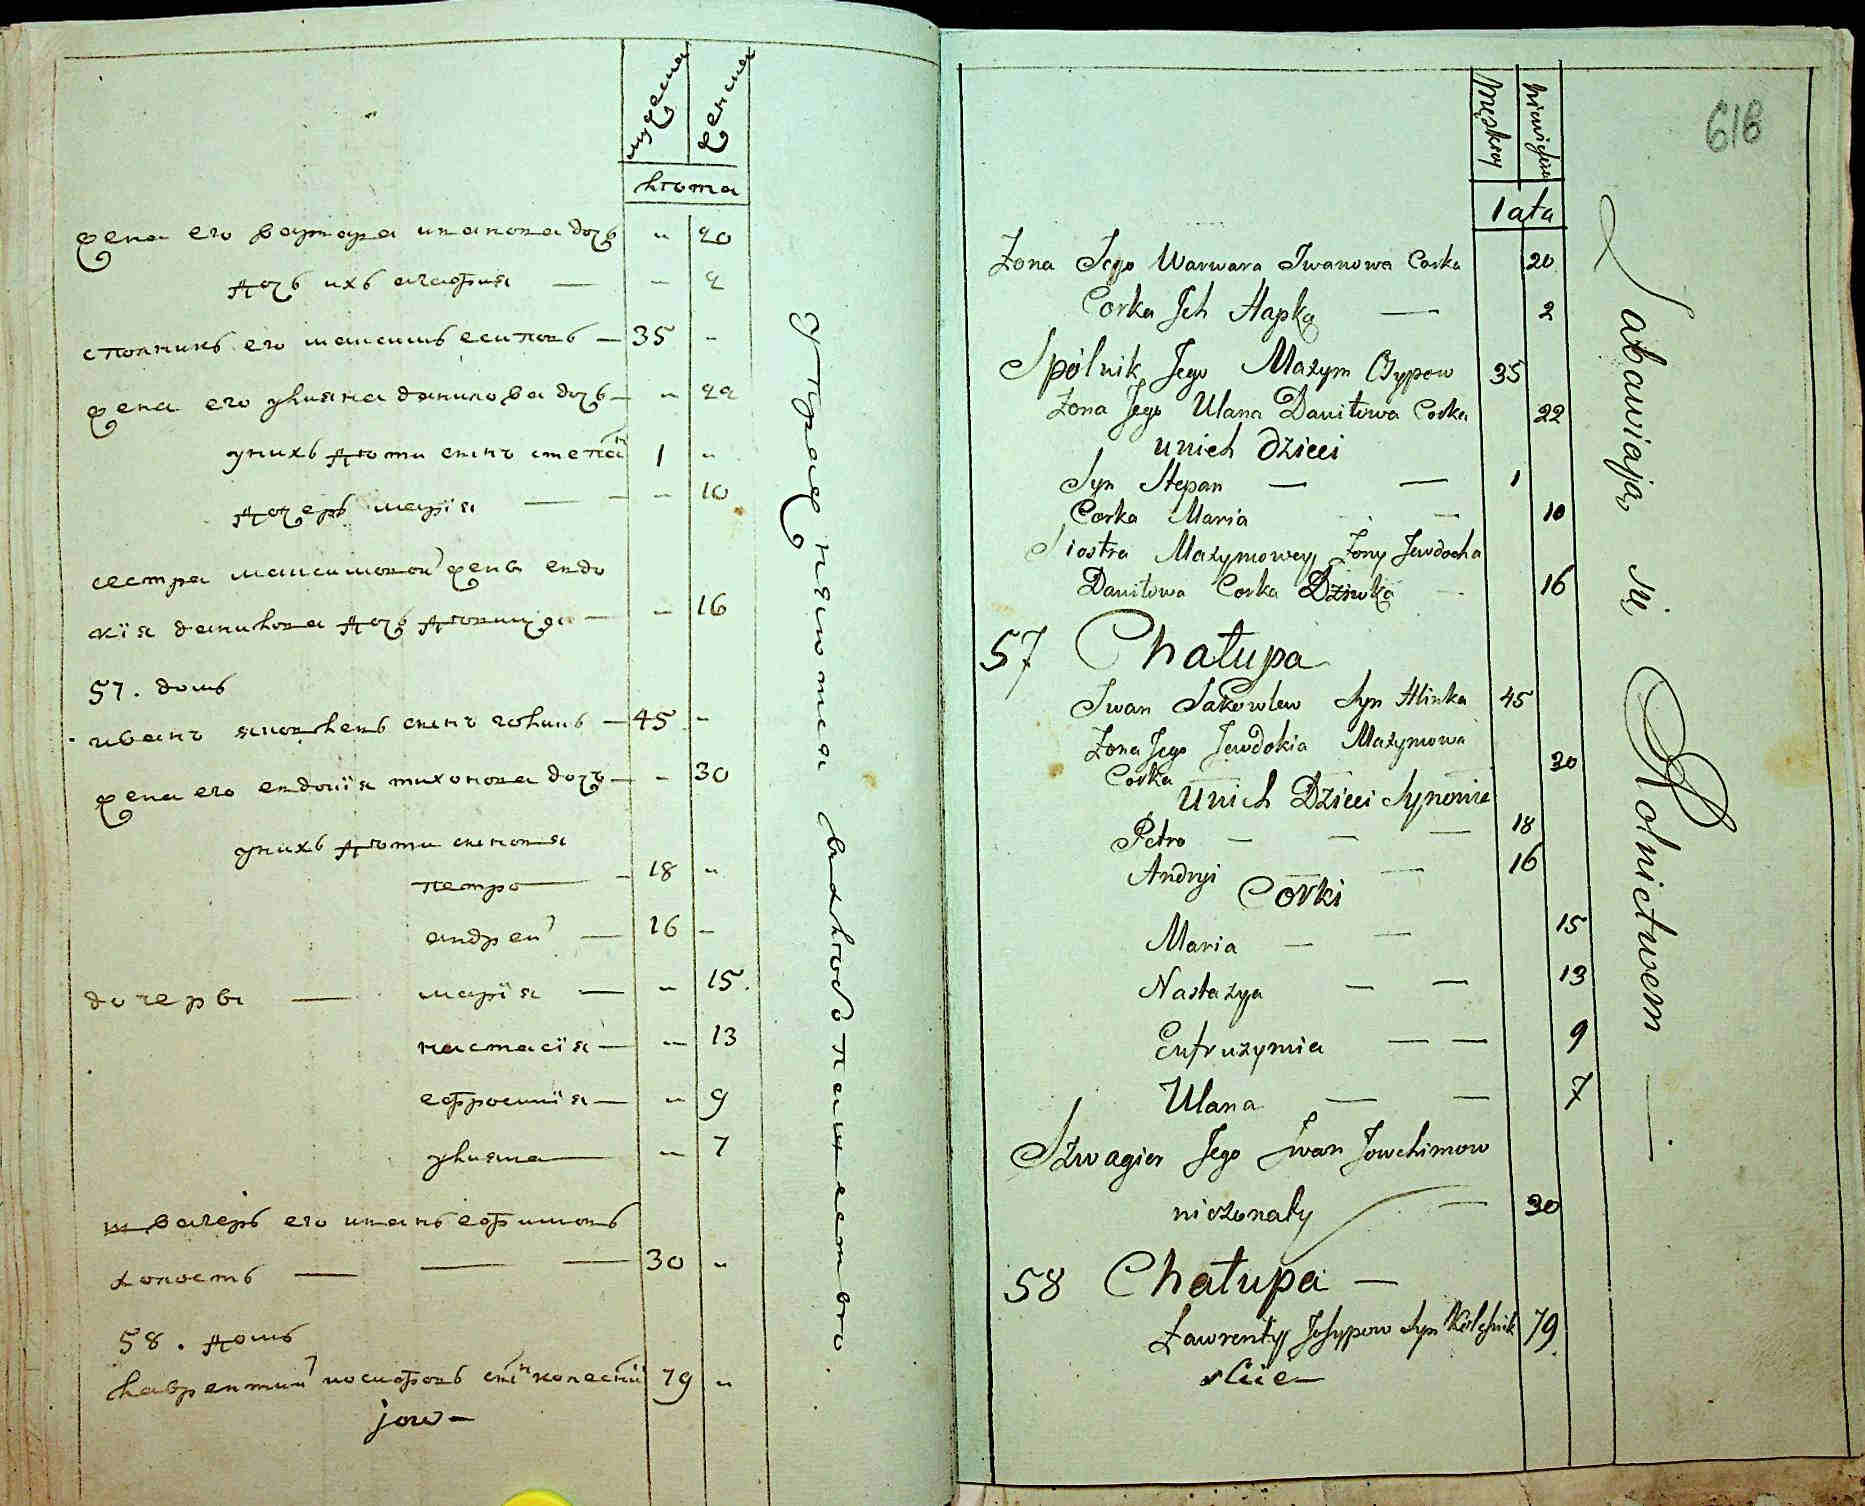 мужеска
женска
лѣта
жена его варвара иванова дочь " 20
дочь ихъ агафия — " 2
сполникъ его максимъ есиповъ — 35 "
жена его ульяна данилова дочь — " 22
унихъ дѣти сынъ степа 1 "
дочерь марія — " 10
сестра максимовой жены евдо
кія данилова дочь дѣвица — " 16
57. домъ
иванъ яковлевъ сынъ глинъ — 45 "
жена его евдокія тихонова дочъ — " 30
унихъ дѣти синовя
петро — 18 "
андрей — 16 "
дочеры — марія — " 15.
настасія — " 13
ефросинія — " 9
ульяна — " 7
швагеръ его иванъ ефимовъ
холостъ — 30 "
58. домъ
лаврентий иосифовъ сынъ колесни 79 "
jow —
упражняются в хлѣбопашествѣ.
618
męzkiey
Lata
Żona Jego Warwara Jwanowa Corka 20
Corka Jch Hapka — 2
Spólnik Jego Maxym Osypow 35
Żona Jego Ulana Daniłowa Corka 22
unich Dzieci
Syn Stepan — — 1
Corka Maria — 10
Siostra Maxymowey Żony Jewdocha
Daniłowa Corka Dziwka — 16
57 Chałupa
Jwan Jakowlew Syn Hlinka 45
Żona Jego Jewdokia Maxymowa
Corka 30
Unich Dzieci Synowie
Petro — — — 18
Andryi — — 16
Corki
Maria — — 15
Nastazya — — 13
Eufruzymia — — 9
Ulana — — 7
Szwagier Jego Jwan Jowchimow
nieżonaty — 30
58 Chałupa —
Ławrentyy Josypow Syn Kolesnik 79
Zabawiaią się Rolnictwem —